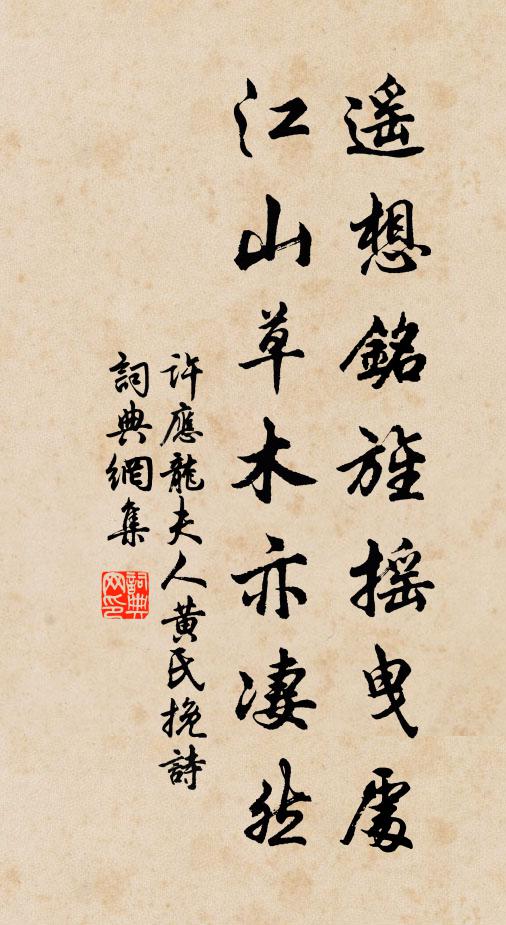 遥想銘旌摇曳處
江山草木亦凄然
許應龍夫人黄氏挽詩
詞典網集
詞典网印